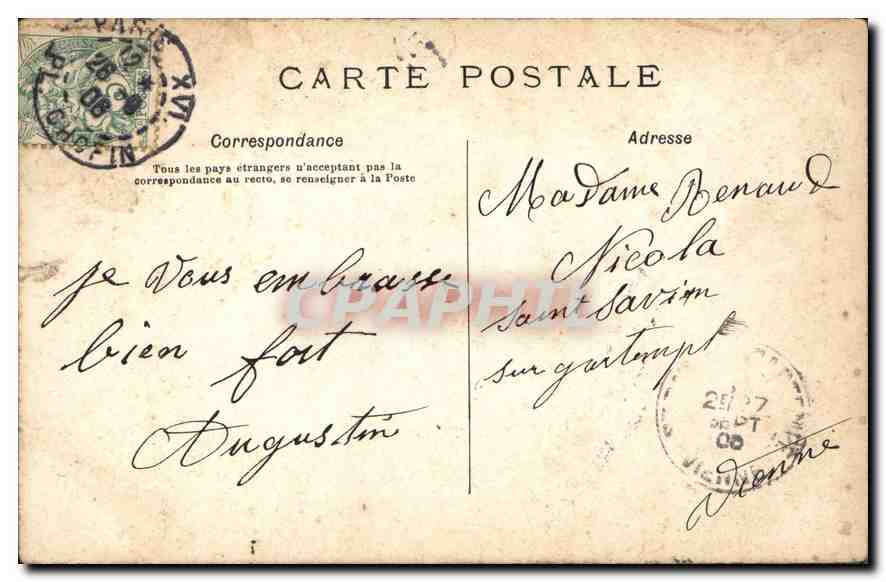 CARTE POSTALE
PARIS XVI
PL. CHOPIN
12 *
26 9
06
Correspondance
Tous les pays étrangers n'acceptant pas la
correspondance au recto, se renseigner à la Poste
je vous embrasse
bien fort
Augustin
Adresse
Madame Renaud
Nicola
saint Savien
sur gartempe
Vienne
CPAPHIL